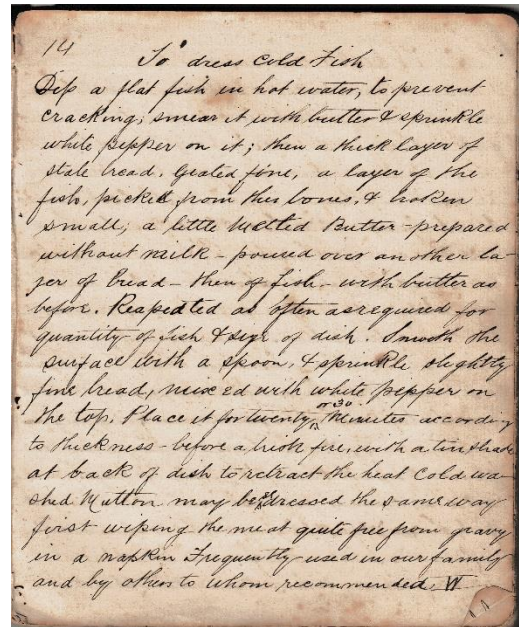 14
To dress cold Fish
Dip a flat fish in hot water, to prevent
cracking; smear it with butter & sprinkle
white pepper on it; then a thick layer of
stale bread. Grated fine, a layer of the
fish, picked from this bones, & broken
small; a little Melted Butter - prepared
without milk - poured over another la-
yer of Bread - then of fish - with butter as
before. Reapeated as often as required for
quantity of fish & size of dish. Smooth the
surface with a spoon, & sprinkle slightly
fine bread, mixed with white pepper on
the top. Place it for twenty or 30 Minutes according
to thickness - before a brisk fire, with a tin
at back of dish to retract the heat Cold wa-
shed Mutton may be dressed the same way
first wiping the meat quite free from gravy
in a napkin Frequently used in our family
and by others to whom recommended.